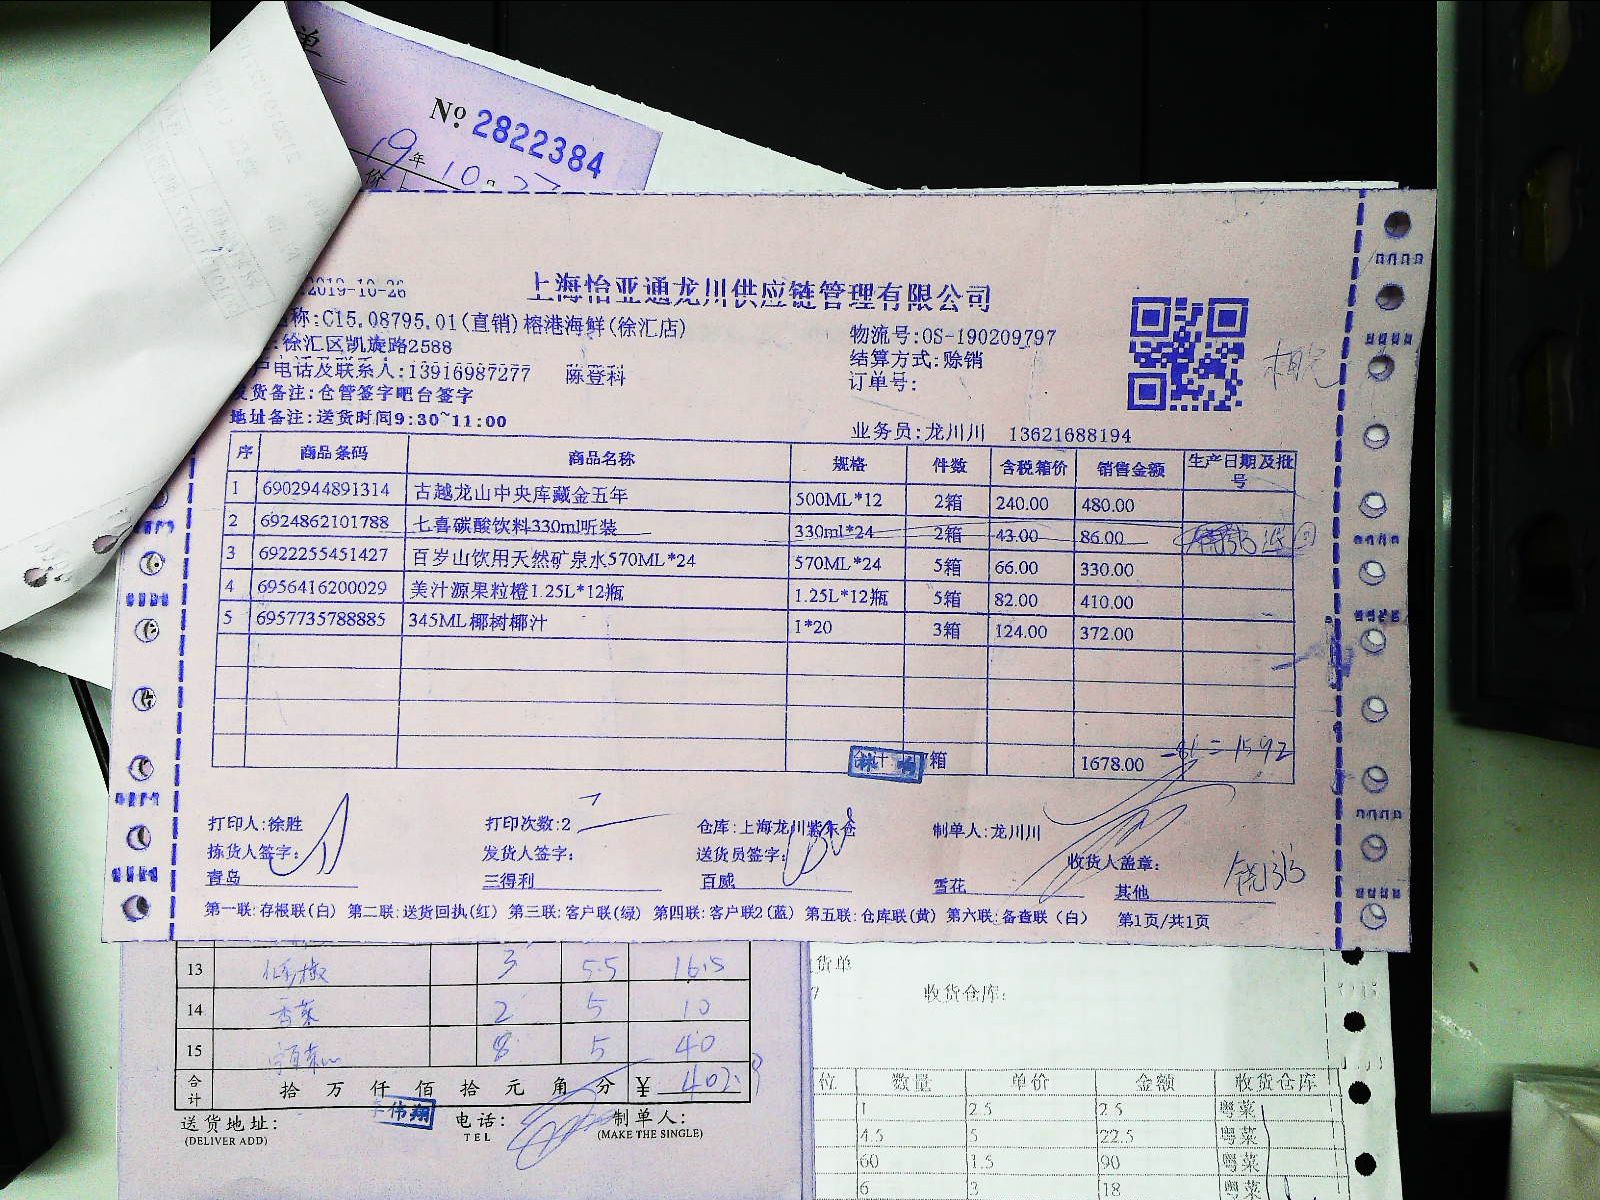 单
№ 2822384
19年 10 27
2019-10-26
上海怡亚通龙川供应链管理有限公司
称:C15.08795.01(直销)榕港海鲜(徐汇店)
物流号:OS-190209797
:徐汇区凯旋路2588
结算方式:赊销
户电话及联系人:13916987277 陈登科
订单号:
发货备注:仓管签字吧台签字
地址备注:送货时间9:30~11:00
业务员:龙川川 13621688194
序 商品条码 商品名称 规格 件数 含税箱价 销售金额 生产日期及批号
1 6902944891314 古越龙山中央库藏金五年 500ML*12 2箱 240.00 480.00
2 6924862101788 七喜碳酸饮料330ml听装 330ml*24 2箱 43.00 86.00
3 6922255451427 百岁山饮用天然矿泉水570ML*24 570ML*24 5箱 66.00 330.00
4 6956416200029 美汁源果粒橙1.25L*12瓶 1.25L*12瓶 5箱 82.00 410.00
5 6957735788885 345ML椰树椰汁 1*20 3箱 124.00 372.00
合计 7箱 1678.00 -86=1592
打印人:徐胜 打印次数:2 仓库:上海龙川紫东仓 制单人:龙川川
拣货人签字: 发货人签字: 送货员签字: 收货人盖章:
青岛 三得利 百威 雪花 其他
第一联:存根联(白) 第二联:送货回执(红) 第三联:客户联(绿) 第四联:客户联2(蓝) 第五联:仓库联(黄) 第六联:备查联(白) 第1页/共1页
13 3 5.5 16.5
14 香菜 2 5 10
15 8 5 40
合计 拾 万 仟 佰 拾 元 角 分 ¥ 402.
送货地址: 伟翔 电话: 制单人:
(DELIVER ADD) TEL (MAKE THE SINGLE)
货单
收货仓库:
位 数量 单价 金额 收货仓库
1 2.5 2.5 粤菜
4.5 5 22.5 粤菜
60 1.5 90 粤菜
6 3 18 粤菜